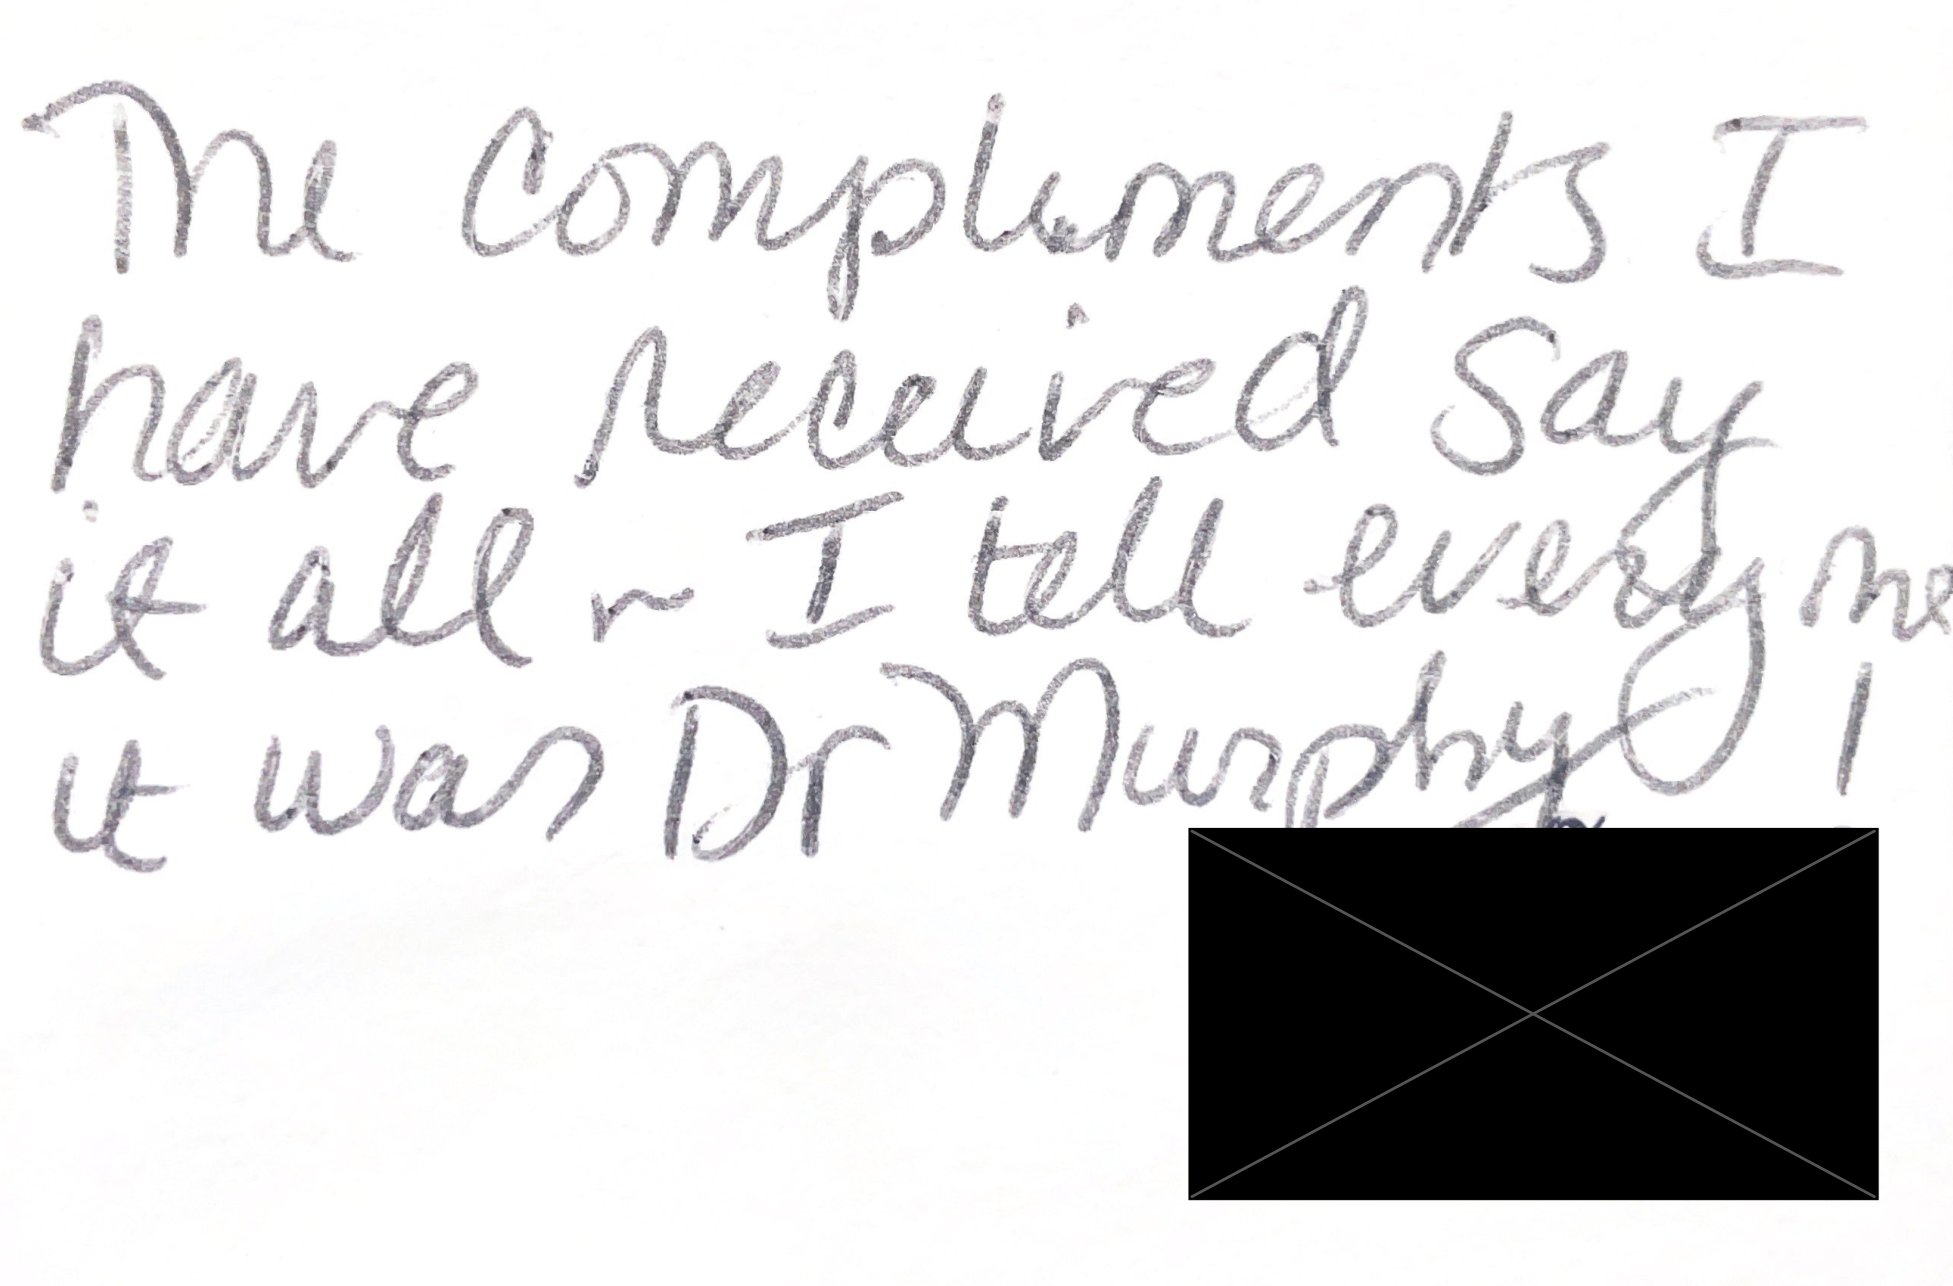 The compliments I
have received say
it all ~ I tell everyone
it was Dr Murphy!